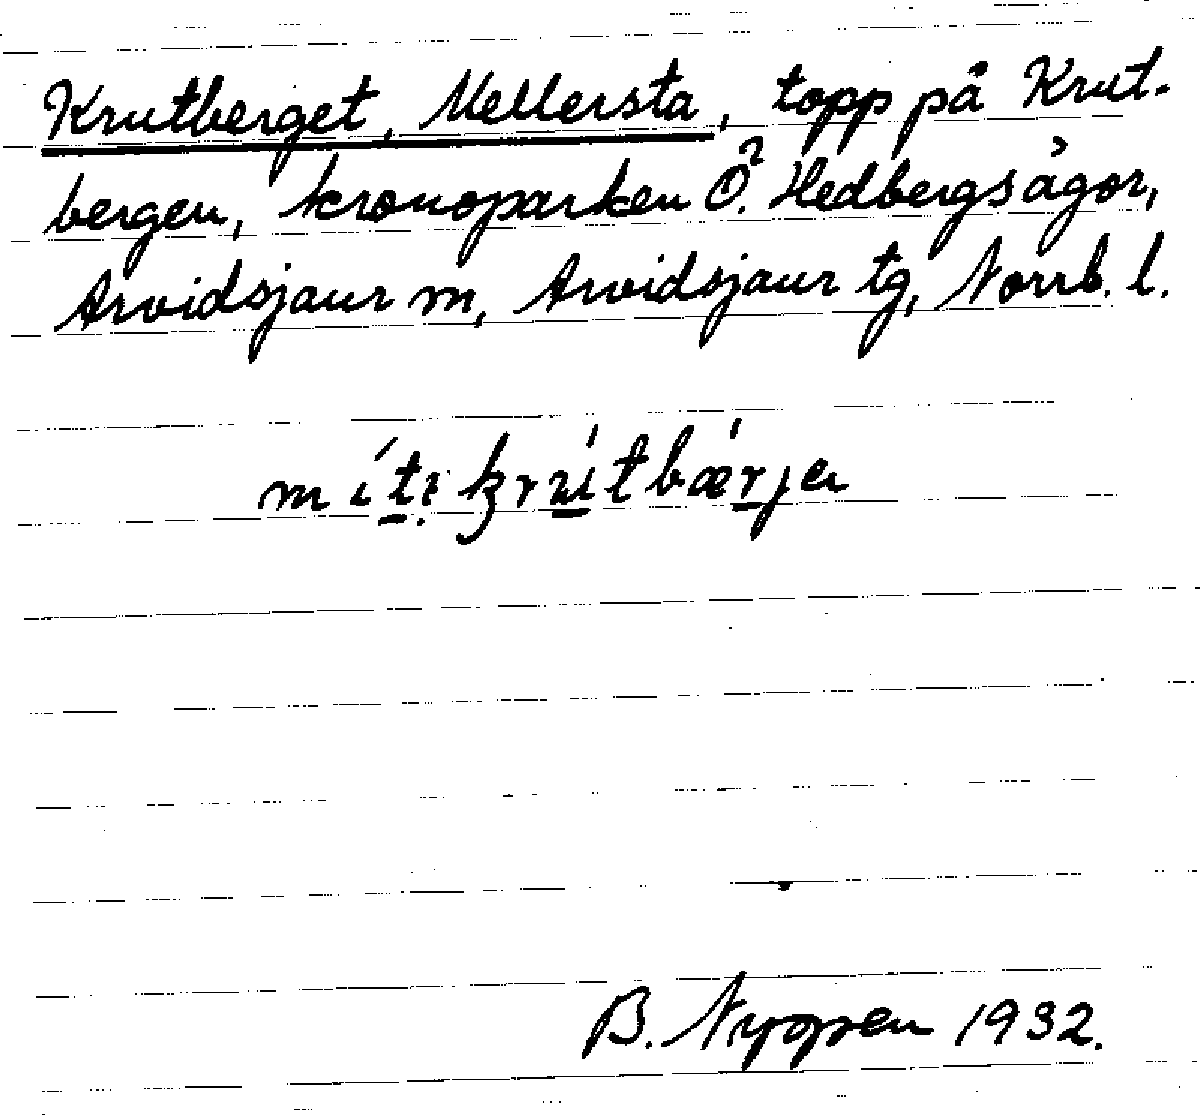 Krutberget, Mellersta, topp på Krut-
bergen, kronoparken Ö. Hedbergsågor,
Arvidsjaur m, Arvidsjaur tg, Norrb. l.
B. Nyopen 1932.